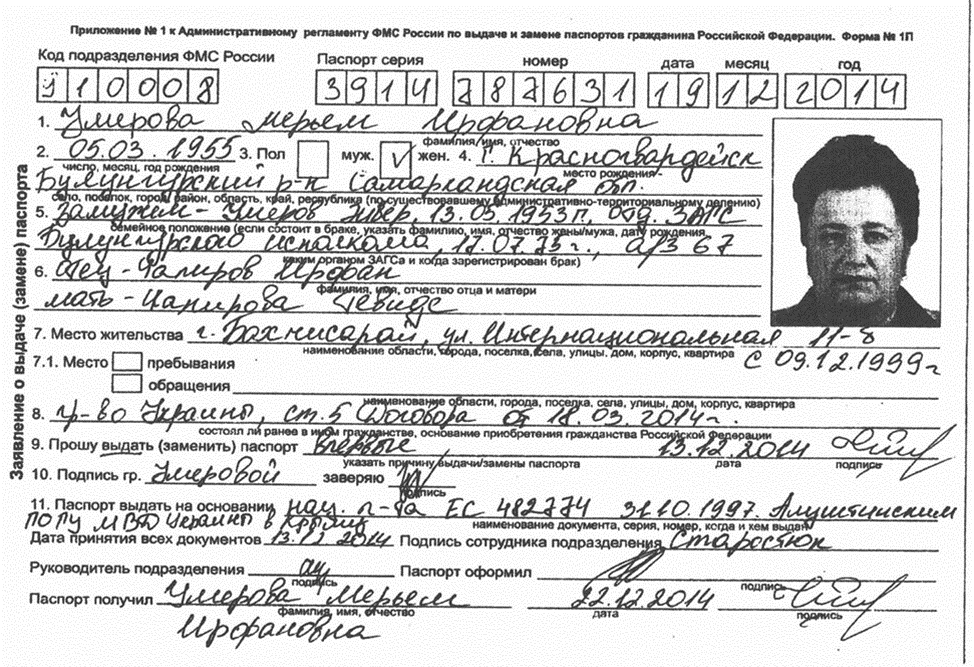 Приложение № 1 к Административному регламенту ФМС России по выдаче и замене паспортов гражданина Российской Федерации. Форма № 1П
Код подразделения ФМС России Паспорт серия номер дата месяц год
910008 3914 787631 19 12 2014
1. Умерова Мерьем Ирфановна
фамилия, имя, отчество
2. 05.03.1955 3. Пол муж. V жен. 4. г. Красногвардейск
число, месяц, год рождения место рождения
Булунгурский р-н Самаркандская обл.
село, поселок, город, район, область, край, республика (по существовавшему административно-территориальному делению)
5. Замужем - Умеров Энвер, 13.05.1953 г., отд. ЗАГС
семейное положение (если состоит в браке, указать фамилию, имя, отчество жены/мужа, дату рождения,
Булунгурского исполкома, 17.07.73 г., а/з 67
каким органом ЗАГСа и когда зарегистрирован брак)
6. Отец - Ирфан
фамилия, имя, отчество отца и матери
мать -
7. Место жительства г. Бахчисарай, ул. Интернациональная 11-8
наименование области, города, поселка, села, улицы, дом, корпус, квартира
с 09.12.1999 г
7.1. Место пребывания
обращения
наименование области, города, поселка, села, улицы, дом, корпус, квартира
8. гр-во Украины, ст. 5 Договора от 18.03.2014 г.
состоял ли ранее в ином гражданстве, основание приобретения гражданства Российской Федерации
9. Прошу выдать (заменить) паспорт впервые 13.12.2014
указать причину выдачи/замены паспорта дата подпись
10. Подпись гр. Умеровой заверяю
подпись
11. Паспорт выдать на основании нац. п-та ЕС 482774 31.10.1997. Алуштинским
наименование документа, серия, номер, когда и кем выдан
МВД Украины в Крыму
Дата принятия всех документов 13.12.2014 Подпись сотрудника подразделения Старостюк
Руководитель подразделения Паспорт оформил
подпись подпись
Паспорт получил Умерова Мерьем 22.12.2014
фамилия, имя, отчество дата подпись
Ирфановна
Заявление о выдаче (замене) паспорта